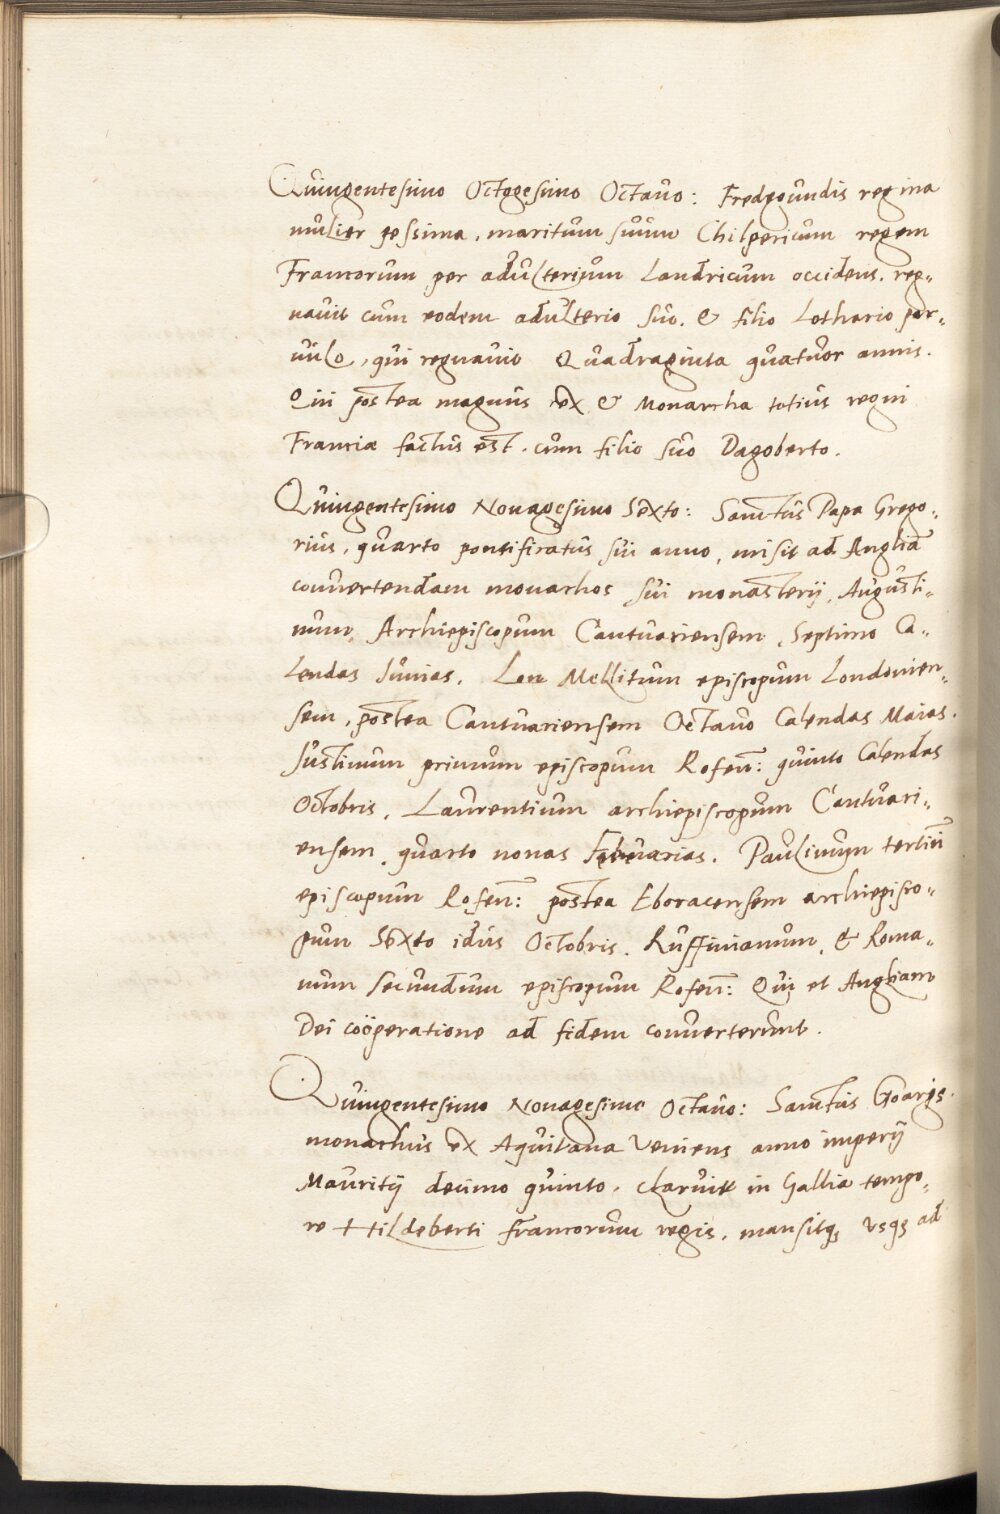 Quingentesimo Octogesimo Octauo: Fredegundis regina
mulier pessima, maritum suum Chilpericum regem
Francorum per adulterium Landricum occidens, reg=
nauit cum eodem adulterio suo. & filio Lothario par=
uulo, qui regnauit Quadraginta quatuor annis.
Qui postea magnus rex & Monarcha totius regni
Franciæ factus est. cum filio suo Dagoberto.
Quingentesimo Nonagesimo Sexto: Sanctus Papa Grego=
rius, quarto pontificatus sui anno, misit ad Angliā
conuertendam monachos sui monasterij, Augusti=
num Archiepiscopum Cantuariensem, Septimo Ca=
lendas Iunias. Mellitum episcopum Londonien=
sem, postea Cantuariensem Octauo Calendas Maias.
Iustinum primum episcopum Rofen̄: quinto Calendas
Octobris. Laurentium archiepiscopum Cantuari=
ensem, quarto nonas Februarias. Paulinum tertiū
episcopum Rofen̄: postea Eboracensem archiepisco=
pum Sexto idus Octobris. Ruffinianum, & Roma=
num secundum episcopum Rofen̄: Qui et Angliam
Dei coöperatione ad fidem conuerterunt.
Quingentesimo Nonagesimo Octauo: Sanctus Goarus
monachus ex Aquitana Veniens anno imperij
Mauritij decimo quinto. claruit in Gallia tempo=
re Hildeberti francorum regis, mansitq; vsq; ad